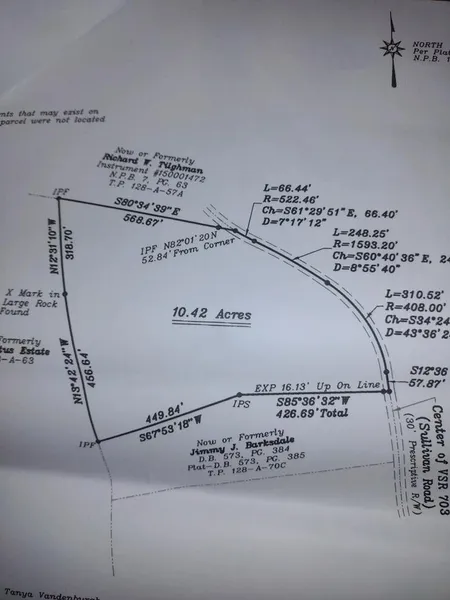 NORTH
Per Plat
N.P.B. 1
nts that may exist on
parcel were not located
Now or Formerly
Richard W. Tilghman
Instrument #150001472
N.P.B. 7, PG. 63
T.P. 128-A-57A
IPF
S80°34'39"E
568.67'
IPF N82°01'20
52.84' From Corner
L=66.44'
R=522.46'
Ch=S61°29'51"E, 66.40'
D=7°17'12"
L=248.25'
R=1593.20'
Ch=S60°40'36"E, 24
D=8°55'40"
L=310.52'
R=408.00'
Ch=S34°24
D=43°36'2
318.70'
X Mark in
Large Rock
Found
10.42 Acres
ormerly
tus Estate
-A-63
N13°42'24"W
456.64'
S12°36
57.87'
EXP 16.13' Up On Line
S85°36'32"W
426.69'Total
IPS
449.84'
S67°53'18"W
IPF
Now or Formerly
Jimmy J. Barksdale
D.B. 573, PG. 384
Plat-D.B. 573, PG. 385
T.P. 128-A-70C
Center of VSR 703
(Sullivan Road)
(30' Prescriptive R/W)
Tanya Vandenburgh